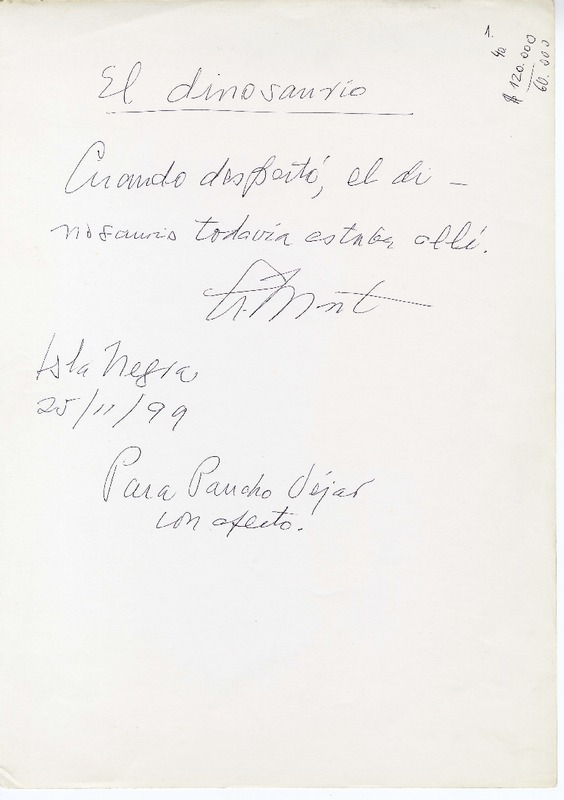 El dinosaurio
Cuando despertó, el di-
nosaurio todavía estaba allí.
Isla Negra
25/11/99
Para Pancho Véjar
con afecto.
1.
40
$ 120.000
60.000